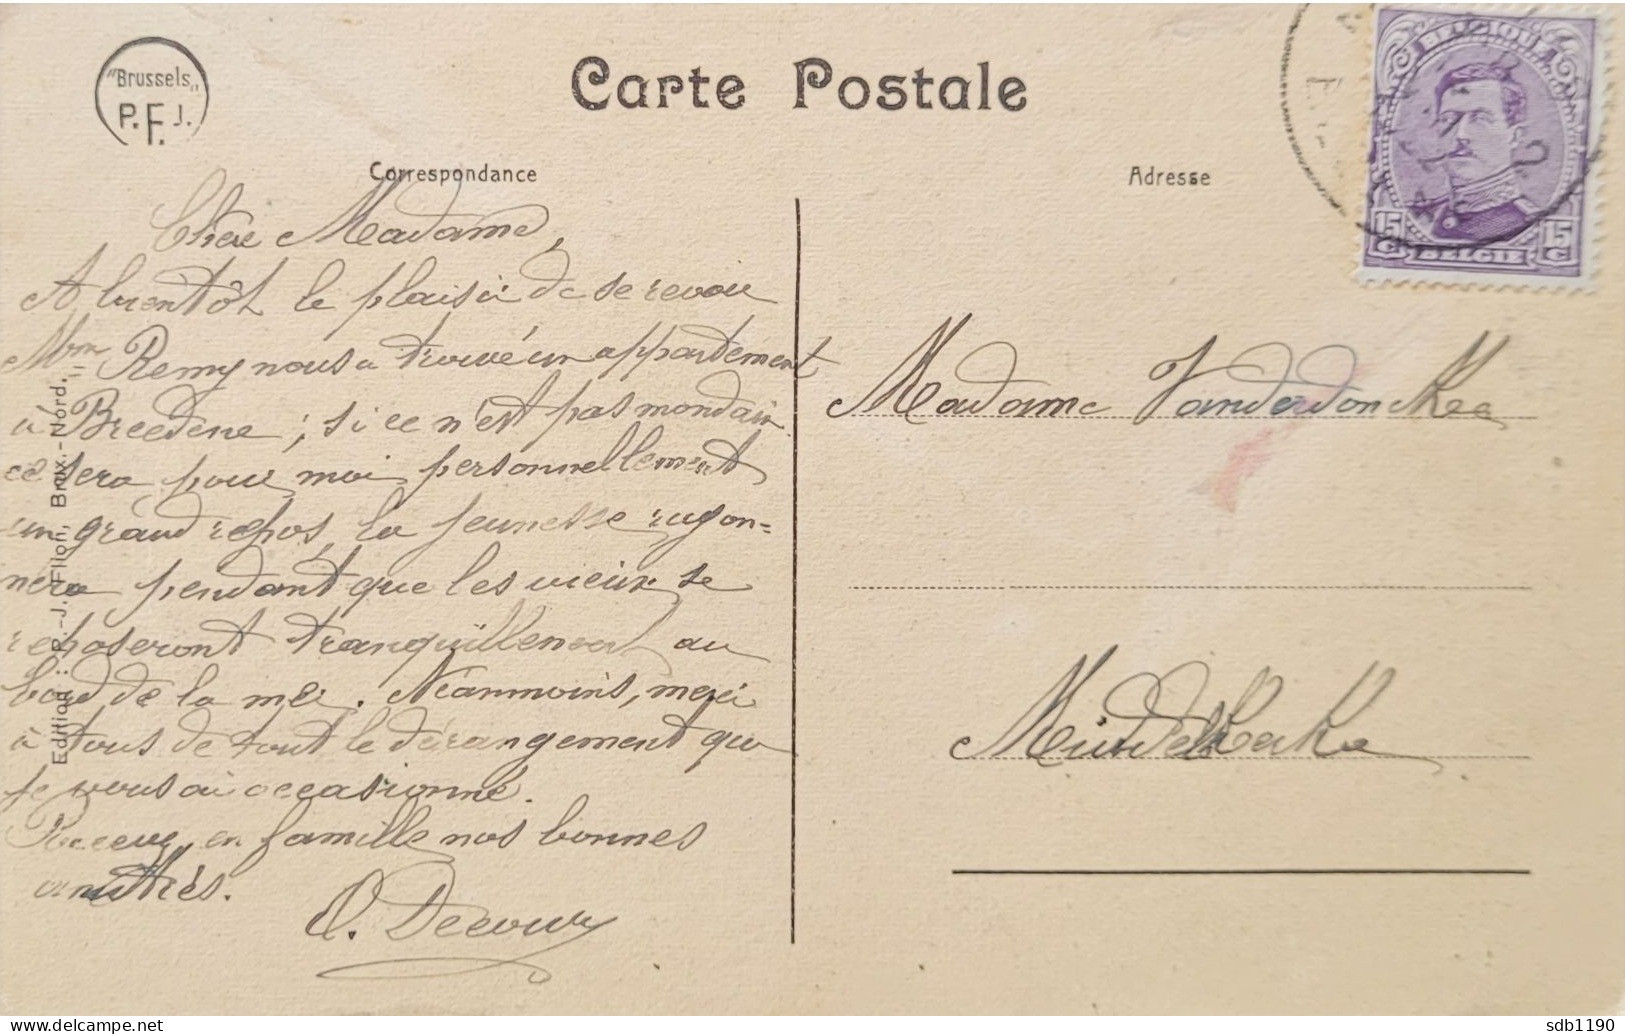 "Brussels"
P.F.J.
Carte Postale
Correspondance
Adresse
BELGIQUE
15 C
15 C
BELGIE
Edition : P.-J. Flion, Brux.-Nord.
Chère Madame,
A bientôt le plaisir de se revoir
Mme Remy nous a trouvé un appartement
à Breedene ; si ce n'est pas mondain
ce sera pour moi personnellement
un grand repos, la jeunesse rayon=
nera pendant que les vieux se
reposeront tranquillement au
bord de la mer. Néanmoins, merci
à tous de tout le dérangement que
je vous ai occasionné.
Recevez en famille nos bonnes
amitiés.
Madame Vanderdonckee
Middelkerke
sdb1190